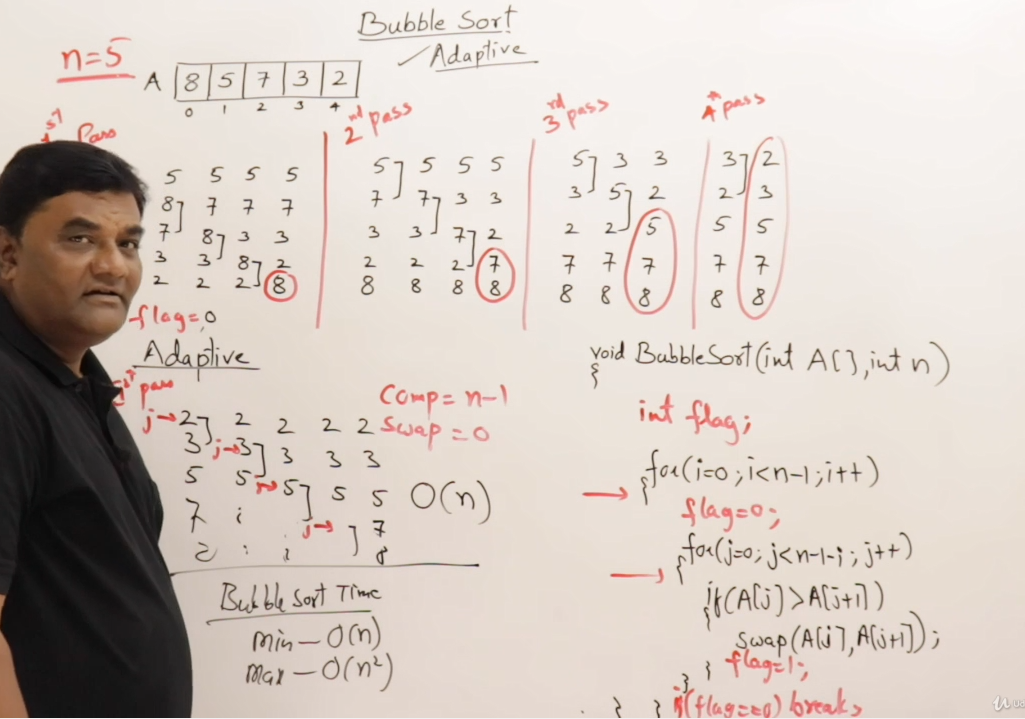 Bubble Sort
✓Adaptive
n=5
A 8 5 7 3 2
0 1 2 3 4
1st Pass
5 5 5 5
8 7 7 7
7 8 3 3
3 3 8 2
2 2 2 8
2nd pass
5 5 5 5
7 7 3 3
3 3 7 2
2 2 2 7
8 8 8 8
3rd pass
5 3 3
3 5 2
2 2 5
7 7 7
8 8 8
pass
3 2
2 3
5 5
7 7
8 8
flag=0
Adaptive
1st pass
j→2 2 2 2 2
3 j→3 3 3 3
5 5 →5 5 5
7 j→ 7
8
Comp = n-1
Swap = 0
O(n)
Bubble Sort Time
Min — O(n)
Max — O(n²)
void BubbleSort(int A[], int n)
{
int flag;
→ for(i=0; i<n-1; i++)
{
flag=0;
for(j=0; j<n-1-i; j++)
→ {
if(A[j]>A[j+1])
{
swap(A[j],A[j+1]);
flag=1;
}
}
if(flag==0) break;
} }